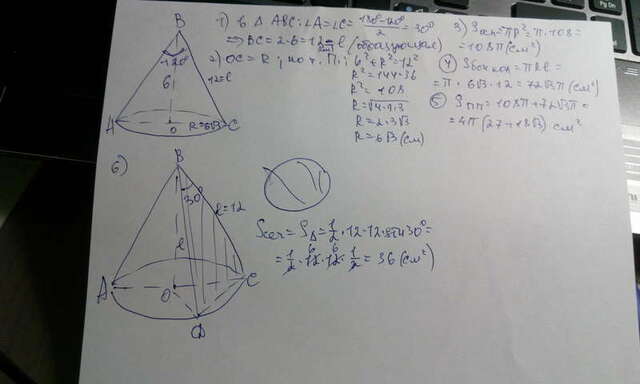 B
120°
6
12=l
A
O
R=6√3
C
1) в Δ ABC: ∠A=∠C= (180°-120°)/2 =30°
⇒ BC=2·6=12=l (образующая)
2) OC=R; по т. П.; 6²+R²=12²
R²=144-36
R²=108
R=√4·9·3
R=2·3√3
R=6√3 (см)
3) Sосн=πR²=π·108=
=108π(см²)
4) Sбок кон=πRl=
=π·6√3·12=72√3π(см²)
5) Sпп=108π+72√3π=
=4π(27+18√3) см²
6)
B
30°
l=12
l
A
O
C
D
Sсеч=SΔ=1/2·12·12·sin30°=
=1/2·12·12·1/2=36(см²)
6 6